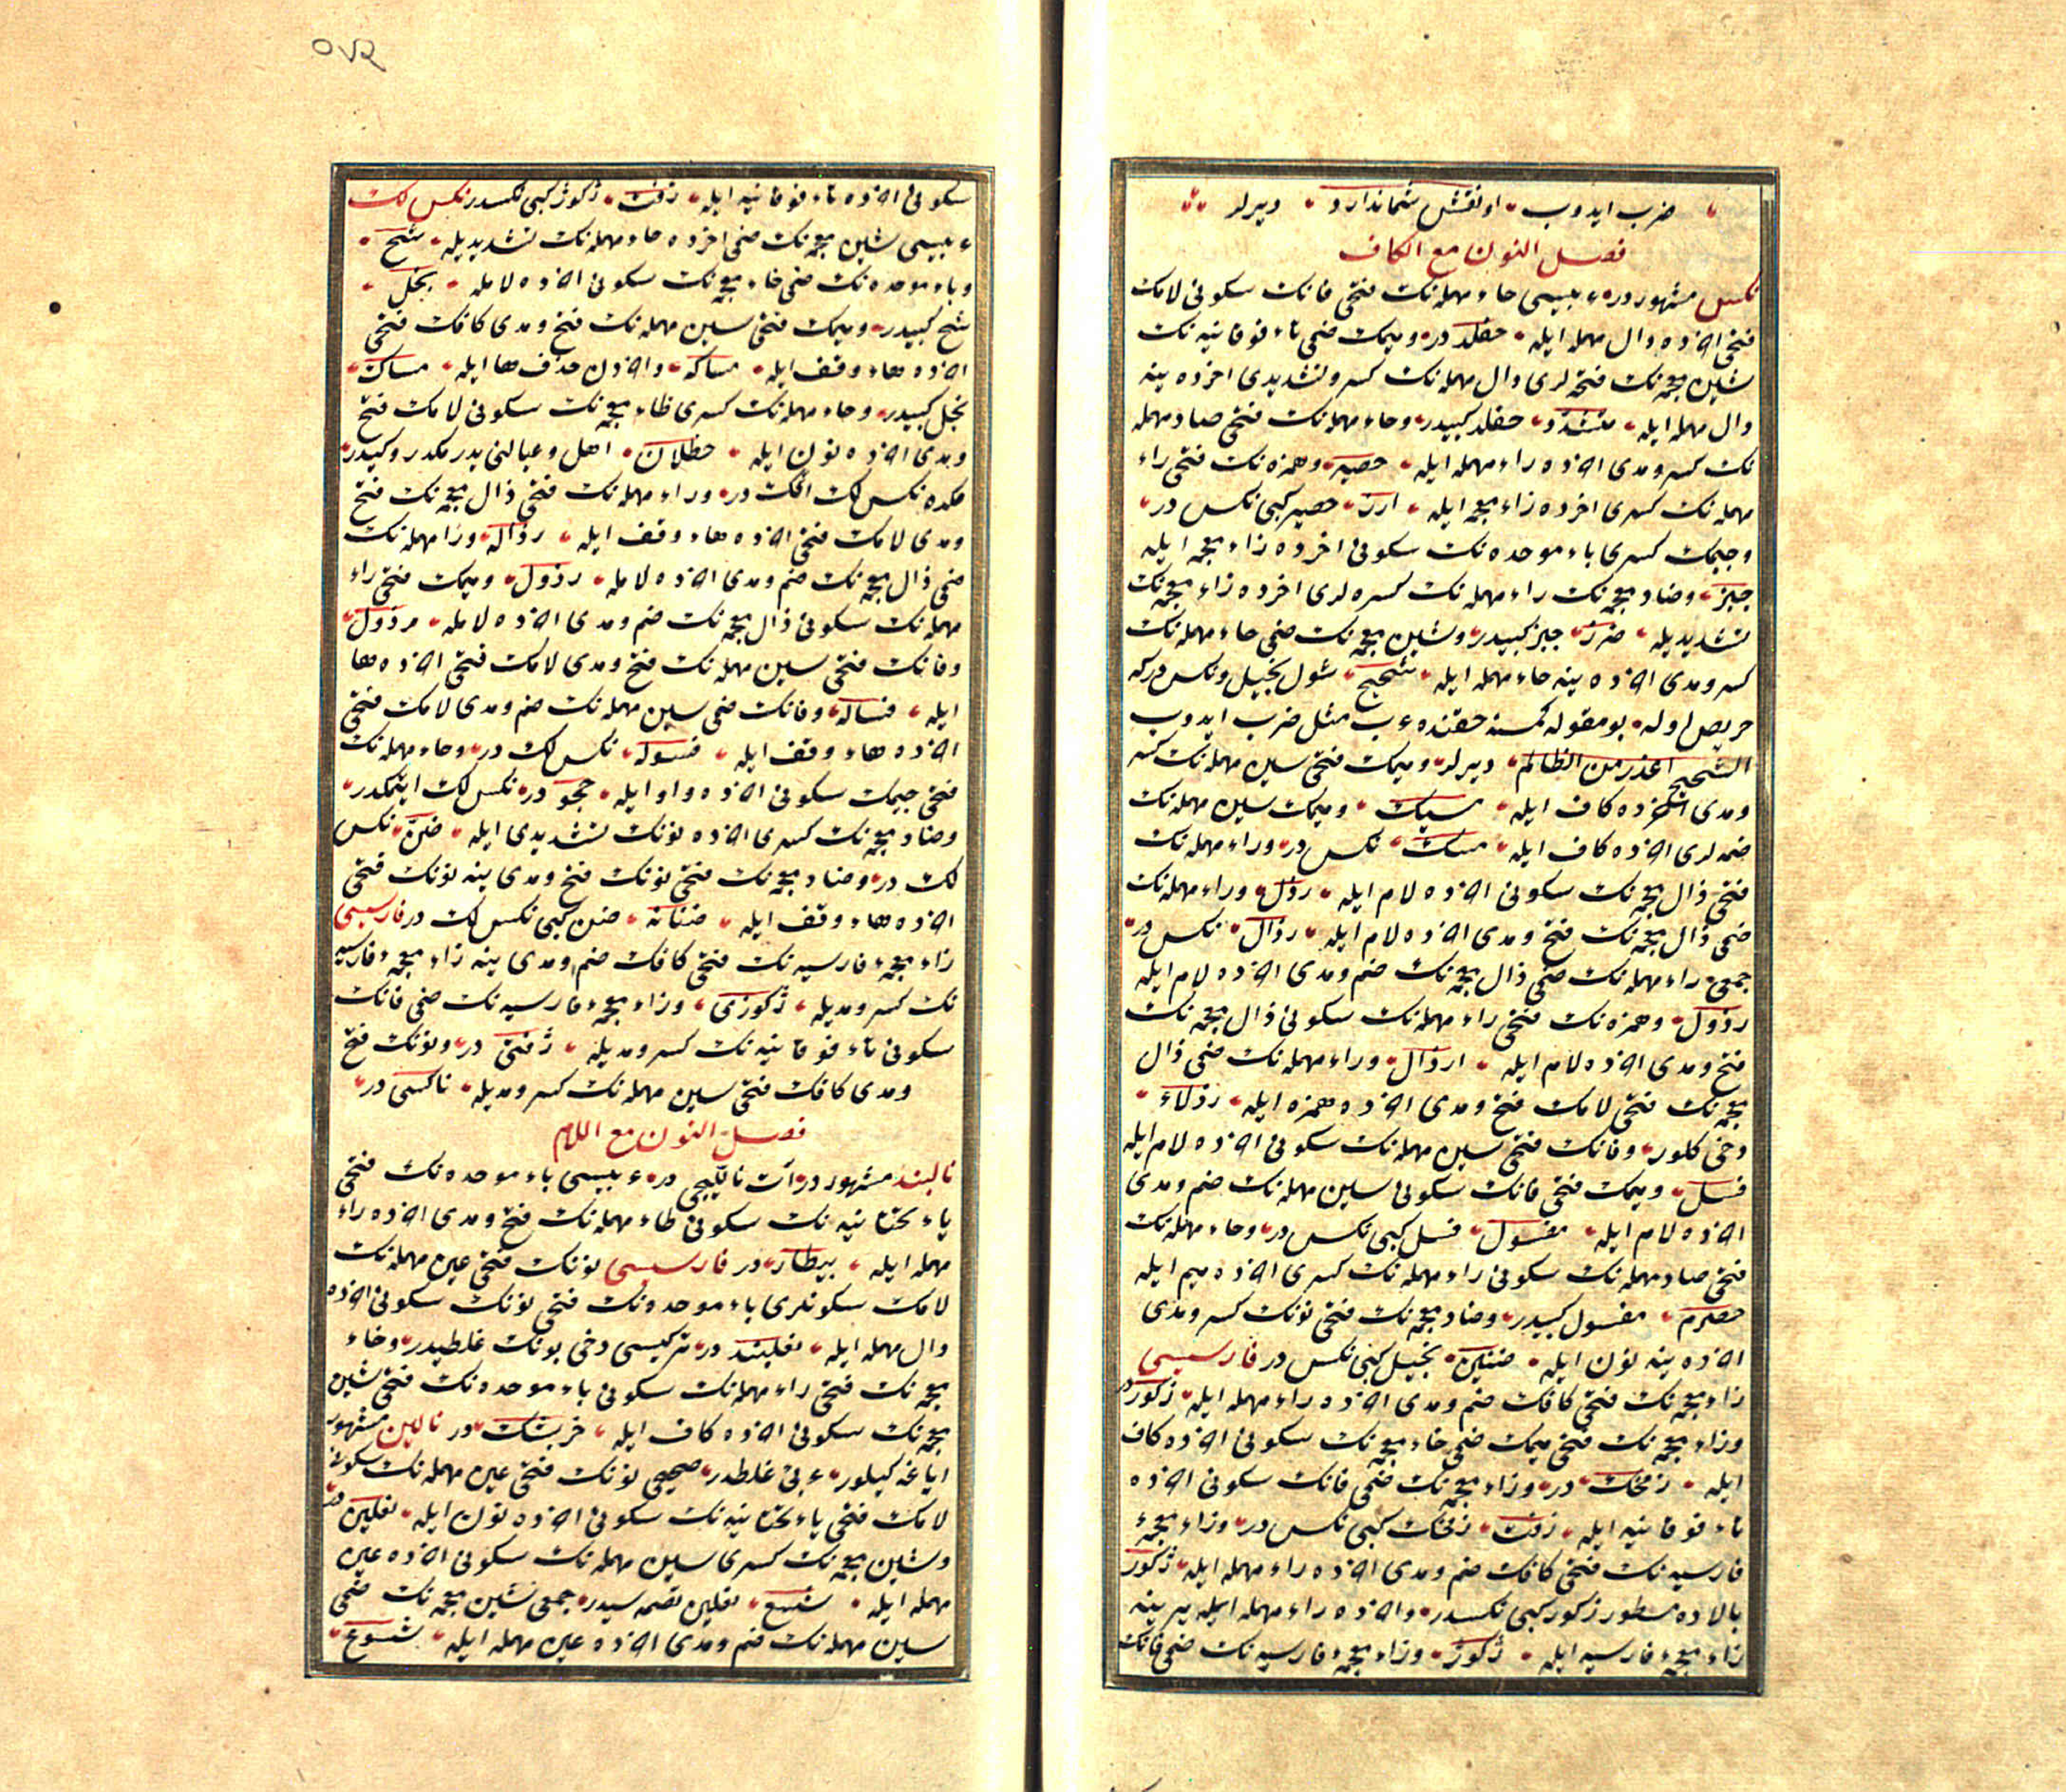 ضرب ايدوب اونقتش شماندارد ديرلر
فصل النون مع الكاف
نكس مشهوردر عربيسى حاء مهمله نك فتحى فانك سكونى لامك
فتحى اخرده دال مهمله ايله حفلد در وميمك ضمى تاء فوقانيه نك
شين معجمه نك فتحه لرى دال مهمله نك كسر وتشديدى اخرده ينه
دال مهمله ايله متشدد حفلد كبيدر وحاء مهمله نك فتحى صاد مهمله
نك كسر ومدى اخرده راء مهمله ايله حصير وهمزه نك فتحى راء
مهمله نك كسرى اخرده زاء معجمه ايله ارز حصير كبى نكس در
وجيمك كسرى باء موحده نك سكونى اخرده زاء معجمه ايله
جبز وضاد معجمه نك راء مهمله نك كسره لرى اخرده زاء معجمه نك
تشديديله ضرز جبز كبيدر وشين معجمه نك ضمى حاء مهمله نك
كسر ومدى اخرده ينه حاء مهمله ايله شحيح شول بخيل ونكس دركه
حريص اوله بو مقوله كمسنه حقنده عرب مثل ضرب ايدوب
الشحيح اعذر من الظالم ديرلر وميمك فتحى سين مهمله نك كسر
ومدى اخرده كاف ايله مسيك وميمك سين مهمله نك
ضمه لرى اخرده كاف ايله مسك نكس در وراء مهمله نك
فتحى ذال معجمه نك سكونى اخرده لام ايله رذل وراء مهمله نك
ضمى ذال معجمه نك فتح ومدى اخرده لام ايله رذال نكس در
جمعى راء مهمله نك ضمى ذال معجمه نك ضم ومدى اخرده لام ايله
رذول وهمزه نك فتحى راء مهمله نك سكونى ذال معجمه نك
فتح ومدى اخرده لام ايله ارذال وراء مهمله نك ضمى ذال
معجمه نك فتحى لامك فتح ومدى اخرده همزه ايله رذلاء
دخى كلور وفانك فتحى سين مهمله نك سكونى اخرده لام ايله
فسل وميمك فتحى فانك سكونى سين مهمله نك ضم ومدى
اخرده لام ايله مفسول فسل كبى نكس در وحاء مهمله نك
فتحى صاد مهمله نك سكونى راء مهمله نك كسرى اخرده ميم ايله
حصرم مفسول كبيدر وضاد معجمه نك فتحى نونك كسر ومدى
اخرده ينه نون ايله ضنين بخيل كبى نكس در فارسيسى
زاء معجمه نك فتحى كافك ضم ومدى اخرده راء مهمله ايله زكور در
وزاء معجمه نك فتحى ميمك ضمى خاء معجمه نك سكونى اخرده كاف
ايله زمخك در وزاء معجمه نك ضمى فانك سكونى اخرده
تاء فوقانيه ايله زفت زمخك كبى نكس در وزاء معجمهء
فارسيه نك فتحى كافك ضم ومدى اخرده راء مهمله ايله ژكور
بالاده مسطور زكور كبى نكسدر واخرده راء مهمله ايله يرينه
زاء معجمهء فارسيه ايله ژكوژ وزاء معجمهء فارسيه نك ضمى فانك
سكونى اخرده تاء فوقانيه ايله ژفت ژكوژ كبى نكسدر نكس لك
عربيسى شين معجمه نك ضمى اخرده حاء مهمله نك تشديديله شح
وباء موحده نك ضمى خاء معجمه نك سكونى اخرده لامله بخل
شح كبيدر وميمك فتحى سين مهمله نك فتح ومدى كافك فتحى
اخرده هاء وقف ايله مساكه واخردن حذف ها ايله مساك
بخل كبيدر وحاء مهمله نك كسرى ظاء معجمه نك سكونى لامك فتح
ومدى اخرده نون ايله حظلان اهل وعيالنى يدرمكدر وكيدر
مكده نكس لك اتمك در وراء مهمله نك فتحى ذال معجمه نك فتح
ومدى لامك فتحى اخرده هاء وقف ايله رذاله وراء مهمله نك
ضمى ذال معجمه نك ضم ومدى اخرده لامله رذول وميمك فتحى راء
مهمله نك سكونى ذال معجمه نك ضم ومدى اخرده لامله مرذول
وفانك فتحى سين مهمله نك فتح ومدى لامك فتحى اخرده ها
ايله فساله وفانك ضمى سين مهمله نك ضم ومدى لامك فتحى
اخرده هاء وقف ايله فسوله نكس لك در وحاء مهمله نك
فتحى جيمك سكونى اخرده واو ايله حجو در نكس لك ايتمكدر
وضاد معجمه نك كسرى اخرده نونك تشديدى ايله ضن نكس
لك در وضاد معجمه نك فتحى نونك فتح ومدى ينه نونك فتحى
اخرده هاء وقف ايله ضنانه ضن كبى نكس لك در فارسيسى
زاء معجمهء فارسيه نك فتحى كافك ضم ومدى ينه زاء معجمهء فارسيه
نك كسر ومديله ژكوژى وزاء معجمهء فارسيه نك ضمى فانك
سكونى تاء فوقانيه نك كسر ومديله ژفتى در ونونك فتح
ومدى كافك فتحى سين مهمله نك كسر ومديله ناكسى در
فصل النون مع اللام
نالبند مشهوردر آت نالچيسى در عربيسى باء موحده نك فتحى
ياء تحتانيه نك سكونى طاء مهمله نك فتح ومدى اخرده راء
مهمله ايله بيطار در فارسيسى نونك فتحى عين مهمله نك
لامك سكونلرى باء موحده نك فتحى نونك سكونى اخرده
دال مهمله ايله نعلبند در تركيسى دخى بونك غلطيدر وخاء
معجمه نك فتحى راء مهمله نك سكونى باء موحده نك فتحى شين
معجمه نك سكونى اخرده كاف ايله خربشك در نالين مشهور
اياغه كيلور عربى غلطدر صحيحى نونك فتحى عين مهمله نك سكونى
لامك فتحى ياء تحتانيه نك سكونى اخرده نون ايله نعلين در
وشين معجمه نك كسرى سين مهمله نك سكونى اخرده عين
مهمله ايله شسع نعلين تصمه سيدر جمعى شين معجمه نك ضمى
سين مهمله نك ضم ومدى اخرده عين مهمله ايله شسوع